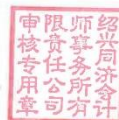 绍兴同济会计
师事务所有
限责任公司
审核专用章